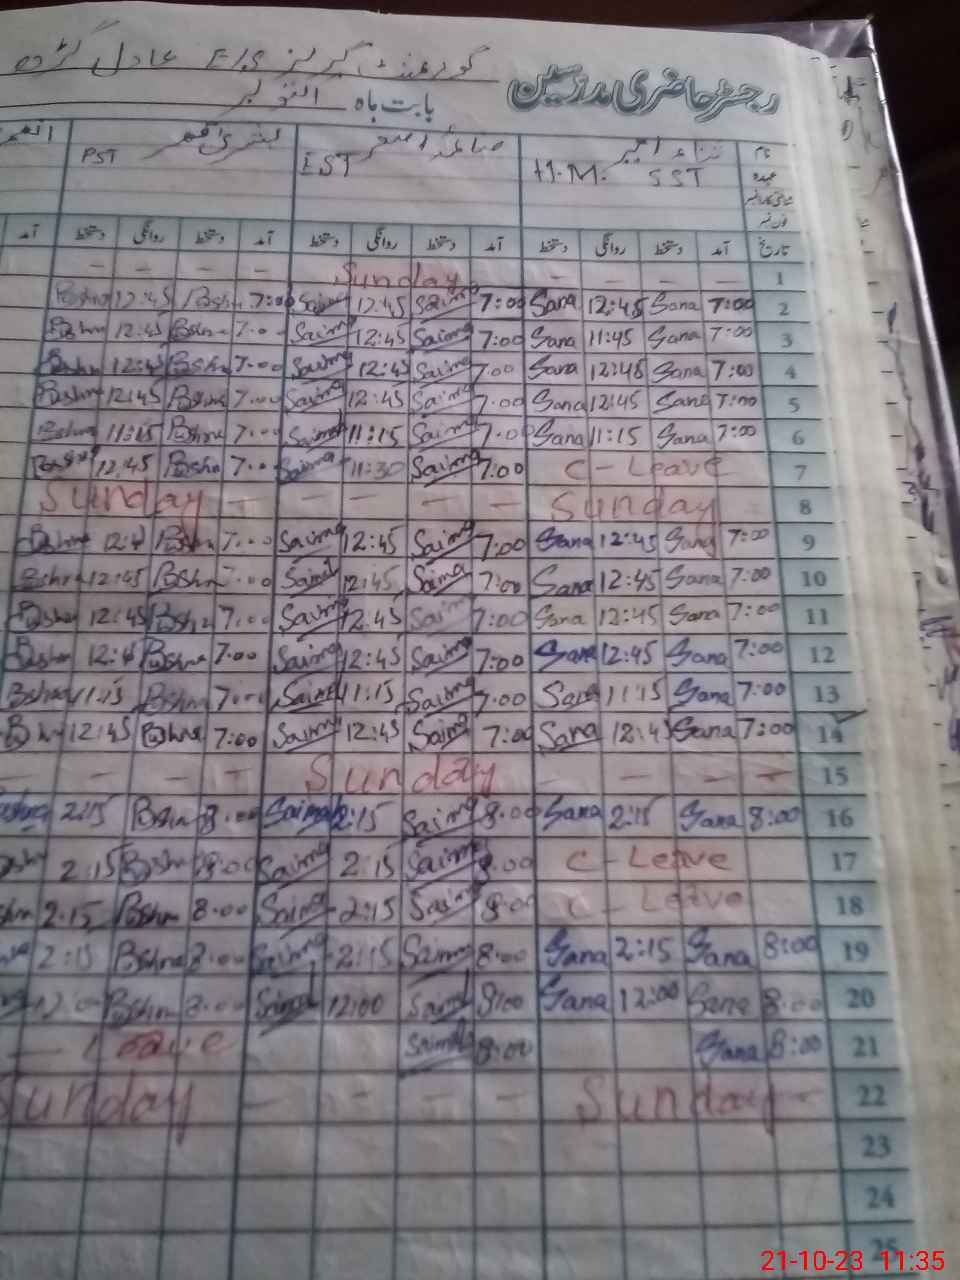 رجسٹر حاضری مدرسین گورنمنٹ گرلز E/S عادل گڑھ
بابت ماہ اکتوبر
نام
عہدہ H.M. SST EST PST
فون نمبر
تاریخ آمد دستخط روانگی دستخط آمد دستخط روانگی دستخط آمد دستخط روانگی دستخط آمد
1 - - - - Sunday - - - -
2 7:00 Sana 12:45 Sana 7:00 Saima 12:45 Saima 7:00 Bshra 12:45 Bshra
3 7:00 Sana 11:45 Sana 7:00 Saima 12:45 Saima 7:00 Bshra 12:45 Bshra
4 7:00 Sana 12:45 Sana 7:00 Saima 12:45 Saima 7:00 Bshra 12:45 Bshra
5 7:00 Sana 12:45 Sana 7:00 Saima 12:45 Saima 7:00 Bshra 12:45 Bshra
6 7:00 Sana 11:15 Sana 7:00 Saima 11:15 Saima 7:00 Bshra 11:15 Bshra
7 C - Leave 7:00 Saima 11:30 Saima 7:00 Bshra 12:45 Bshra
8 Sunday - - - - - Sunday
9 7:00 Sana 12:45 Sana 7:00 Saima 12:45 Saima 7:00 Bshra Bshra
10 7:00 Sana 12:45 Sana 7:00 Saima 12:45 Saima 7:00 Bshra 12:45 Bshra
11 7:00 Sana 12:45 Sana 7:00 Saima 12:45 Saima 7:00 Bshra 12:45 Bshra
12 7:00 Sana 12:45 Sana 7:00 Saima 12:45 Saima 7:00 Bshra Bshra
13 7:00 Sana 11:15 Sana 7:00 Saima 11:15 Saima 7:00 Bshra 11:15 Bshra
14 7:00 Sana 12:45 Sana 7:00 Saima 12:45 Saima 7:00 Bshra 12:45 Bshra
15 - - - - Sunday - - - -
16 8:00 Sana 2:15 Sana 8:00 Saima 2:15 Saima 8:00 Bshra 2:15 Bshra
17 C - Leave 8:00 Saima 2:15 Saima 8:00 Bshra 2:15
18 C - Leave 8:00 Saima 2:15 Saima 8:00 Bshra 2:15
19 8:00 Sana 2:15 Sana 8:00 Saima 2:15 Saima 8:00 Bshra 2:15
20 8:00 Sana 12:00 Sana 8:00 Saima 12:00 Saima 8:00 Bshra 12:00
21 8:00 Sana 8:00 Saima Leave
22 - Sunday - - - - - Sunday
23
24
25
21-10-23 11:35